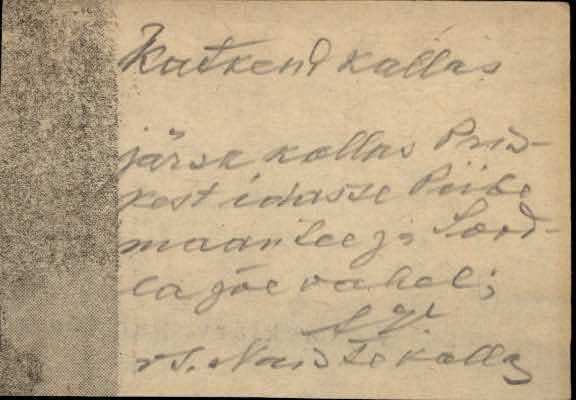 Katkend kallas
järsk kallas Pris-
kest idasse Piibe
maantee ja Sood-
la jõe vahel;
rs. Naistekallas